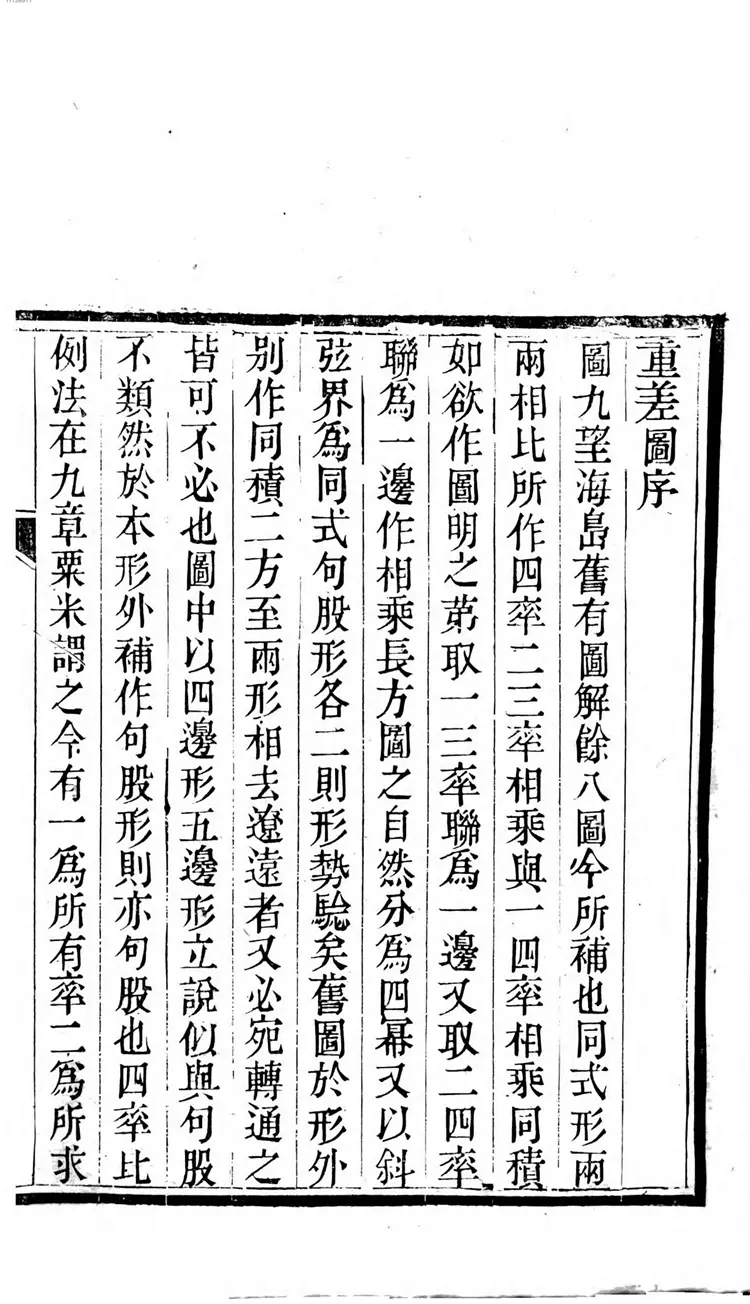 重差圖序
圖九望海島舊有圖解餘八圖今所補也同式形兩
兩相比所作四率二三率相乘與一四率相乘同積
如欲作圖明之第取一三率聯為一邊又取二四率
聯為一邊作相乘長方圖之自然分為四冪又以斜
弦界為同式句股形各二則形勢驗矣舊圖於形外
別作同積二方至兩形相去遼遠者又必宛轉通之
皆可不必也圖中以四邊形五邊形立說似與句股
不類然於本形外補作句股形則亦句股也四率比
例法在九章粟米謂之今有一為所有率二為所求